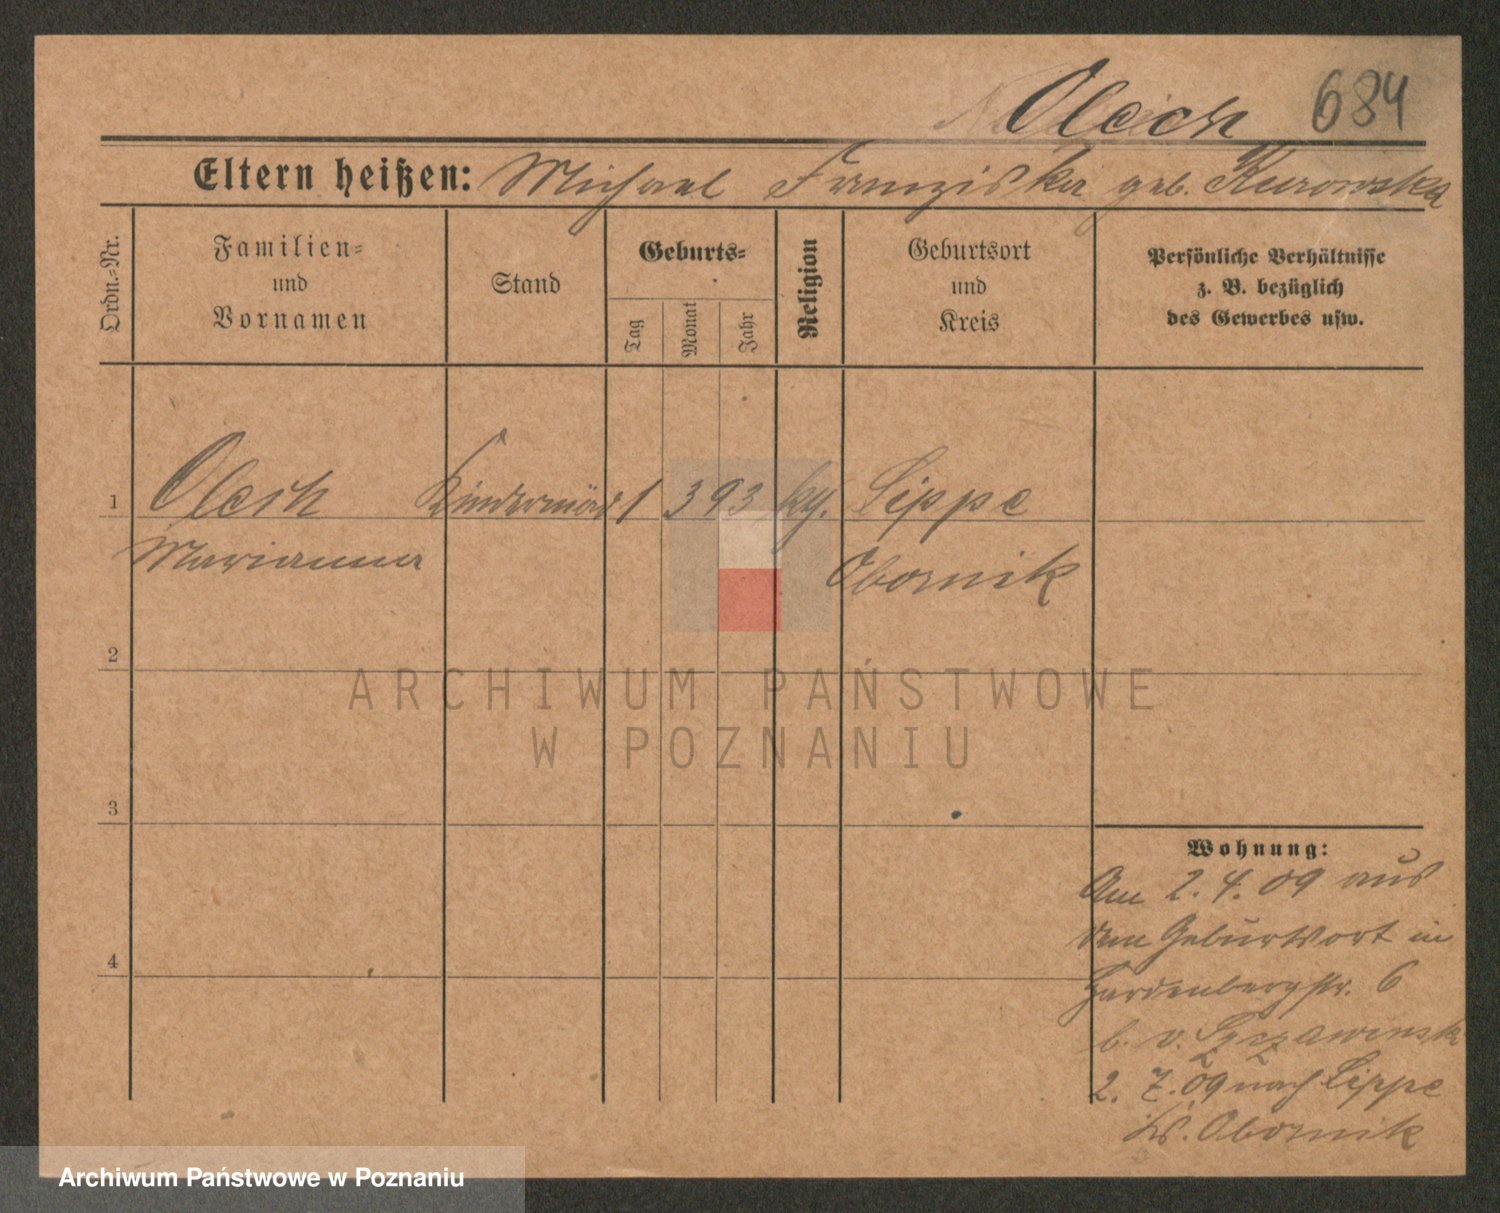 Olech 684
Eltern heißen: Michael Franziska geb. Kurowska
Ordn.-Nr.
Familien-
und
Vornamen
Stand
Geburts-
Tag
Monat
Jahr
Religion
Geburtsort
und
Kreis
Persönliche Verhältnisse
z. B. bezüglich
des Gewerbes usw.
1 Olech Kindermäd 1 3 93 kth. Lippe
Marianna Obornik
2
ARCHIWUM PAŃSTWOWE
W POZNANIU
3
Wohnung:
Am 2. 4. 09 aus
dem Geburtsort in
4
Hardenbergstr. 6
b. v.
2. 7. 09 nach Lippe
Kr. Obornik
Archiwum Państwowe w Poznaniu